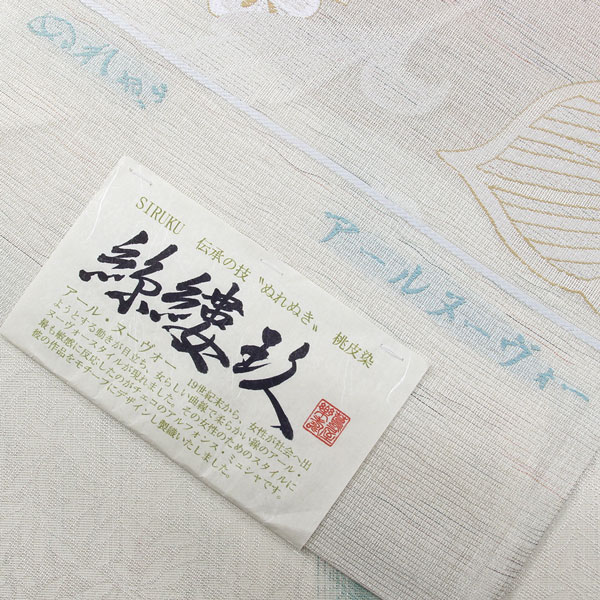 ぬれぬき
アールヌーヴォー
SIRUKU 伝承の技〝ぬれぬき〟桃皮染
絲縷玖
アール・ヌーヴォー
19世紀末から、女性が社会へ出
ようとする動きが目立ち、女らしい曲線で柔らかい線のアール・
ヌーヴォースタイルが現れました。その女性のためのスタイルに
最も敏感に反応したのがチェコのアルフォンス・ミュシャです。
彼の作品をモチーフにデザインし製織いたしました。